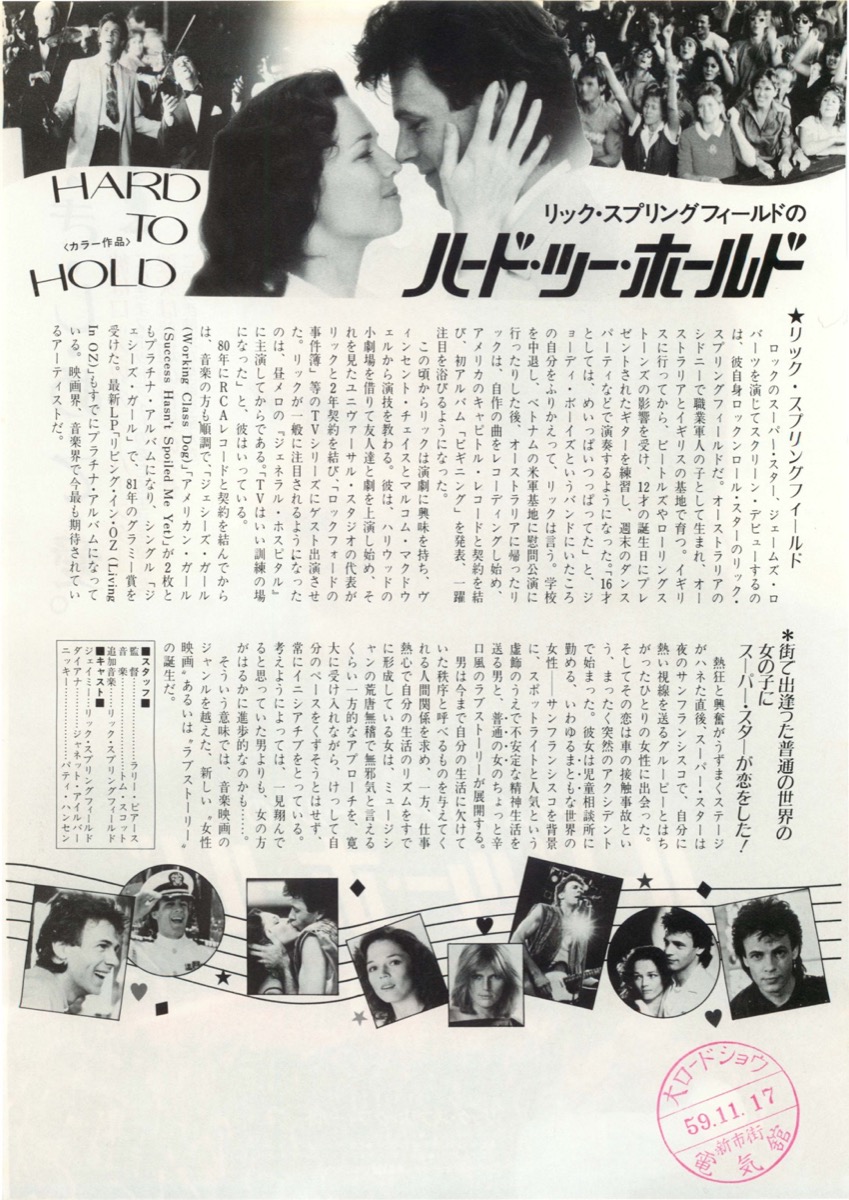 HARD
TO
HOLD
〈カラー作品〉
リック・スプリングフィールドの
ハード・ツー・ホールド
★リック・スプリングフィールド
ロックのスーパー・スター、ジェームズ・ロ
バーツを演じてスクリーン・デビューするの
は、彼自身ロックンロール・スターのリック・
スプリングフィールドだ。オーストラリアの
シドニーで職業軍人の子として生まれ、オー
ストラリアとイギリスの基地で育つ。イギリ
スに行ってから、ビートルズやローリングス
トーンズの影響を受け、12才の誕生日にプレ
ゼントされたギターを練習し、週末のダンス
パーティなどで演奏するようになった。「16才
としては、めいっぱいつっぱってた」と、ジ
ョーディ・ボーイズというバンドにいたころ
の自分をふりかえって、リックは言う。学校
を中退し、ベトナムの米軍基地に慰問公演に
行ったりした後、オーストラリアに帰ったリ
ックは、自作の曲をレコーディングし始め、
アメリカのキャピトル・レコードと契約を結
び、初アルバム「ビギニング」を発表、一躍
注目を浴びるようになった。
この頃からリックは演劇に興味を持ち、ヴ
ィンセント・チェイスとマルコム・マクドウ
ェルから演技を教わる。彼は、ハリウッドの
小劇場を借りて友人達と劇を上演し始め、そ
れを見たユニヴァーサル・スタジオの代表が
リックと2年契約を結び「、ロックフォードの
事件簿」等のTVシリーズにゲスト出演させ
た。リックが一般に注目されるようになった
のは、昼メロの『ジェネラル・ホスピタル』
に主演してからである。「TVはいい訓練の場
になった」と、彼はいっている。
80年にRCAレコードと契約を結んでから
は、音楽の方も順調で「ジェシーズ・ガール
(Working Class Dog)」「アメリカン・ガール
(Success Hasn't Spoiled Me Yet)」が2枚と
もプラチナ・アルバムになり、シングル「ジ
ェシーズ・ガール」で、81年のグラミー賞を
受けた。最新LP「リビング・イン・OZ(Living
In OZ)」もすでにプラチナ・アルバムになって
いる。映画界、音楽界で今最も期待されてい
るアーティストだ。
＊街で出逢った普通の世界の
女の子に
スーパー・スターが恋をした！
熱狂と興奮がうずまくステージ
がハネた直後、スーパー・スターは
夜のサンフランシスコで、自分に
熱い視線を送るグルーピーとはち
がったひとりの女性に出会った。
そしてその恋は車の接触事故とい
う、まったく突然のアクシデント
で始まった。彼女は児童相談所に
勤める、いわゆるまともな世界の
女性──サンフランシスコを背景
に、スポットライトと人気という
虚飾のうえで不安定な精神生活を
送る男と、普通の女のちょっと辛
口風のラブストーリーが展開する。
男は今まで自分の生活に欠けて
いた秩序と呼べるものを与えてく
れる人間関係を求め、一方、仕事
熱心で自分の生活のリズムをすで
に形成している女は、ミュージシ
ャンの荒唐無稽で無邪気と言える
くらい一方的なアプローチを、寛
大に受け入れながら、けっして自
分のペースをくずそうとはせず、
常にイニシアチブをとっている。
考えようによっては、一見翔んで
ると思っていた男よりも、女の方
がはるかに進歩的なのかも……。
そういう意味では、音楽映画の
ジャンルを越えた、新しい〝女性
映画〟あるいは〝ラブストーリー〟
の誕生だ。
■スタッフ■
監督……………ラリー・ピアース
音楽……………トム・スコット
追加音楽……リック・スプリングフィールド
■キャスト■
ジェイミー…リック・スプリングフィールド
ダイアナ………ジャネット・アイルバー
ニッキー………パティ・ハンセン
大ロードショウ
59.11.17
新市街
電気館